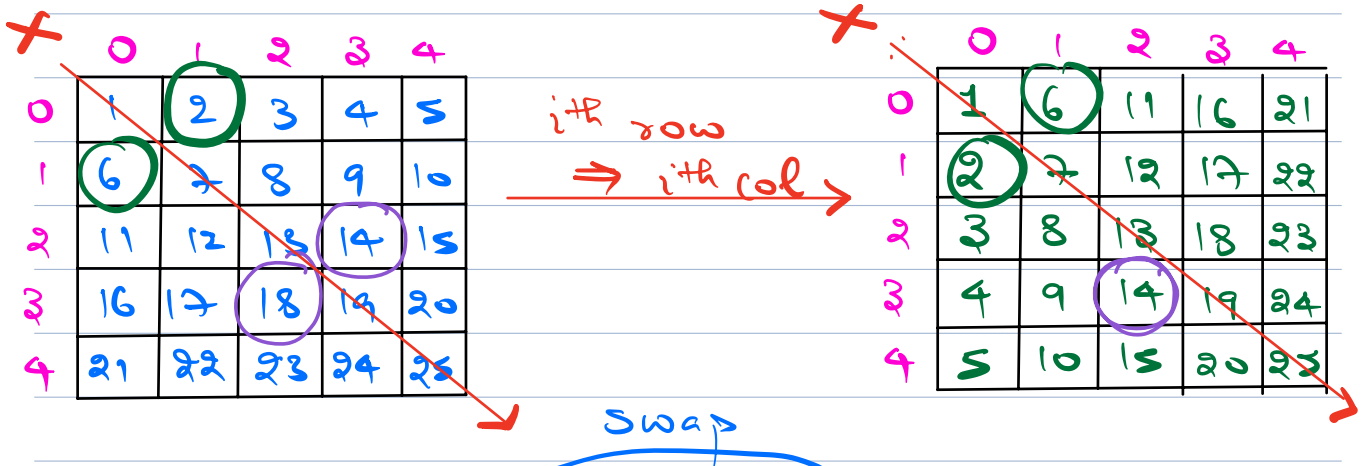 0 1 2 3 4
0 1 2 3 4 5
1 6 7 8 9 10
2 11 12 13 14 15
3 16 17 18 19 20
4 21 22 23 24 25
ith row
⇒ ith col
0 1 2 3 4
0 1 6 11 16 21
1 2 7 12 17 22
2 3 8 13 18 23
3 4 9 14 19 24
4 5 10 15 20 25
swap